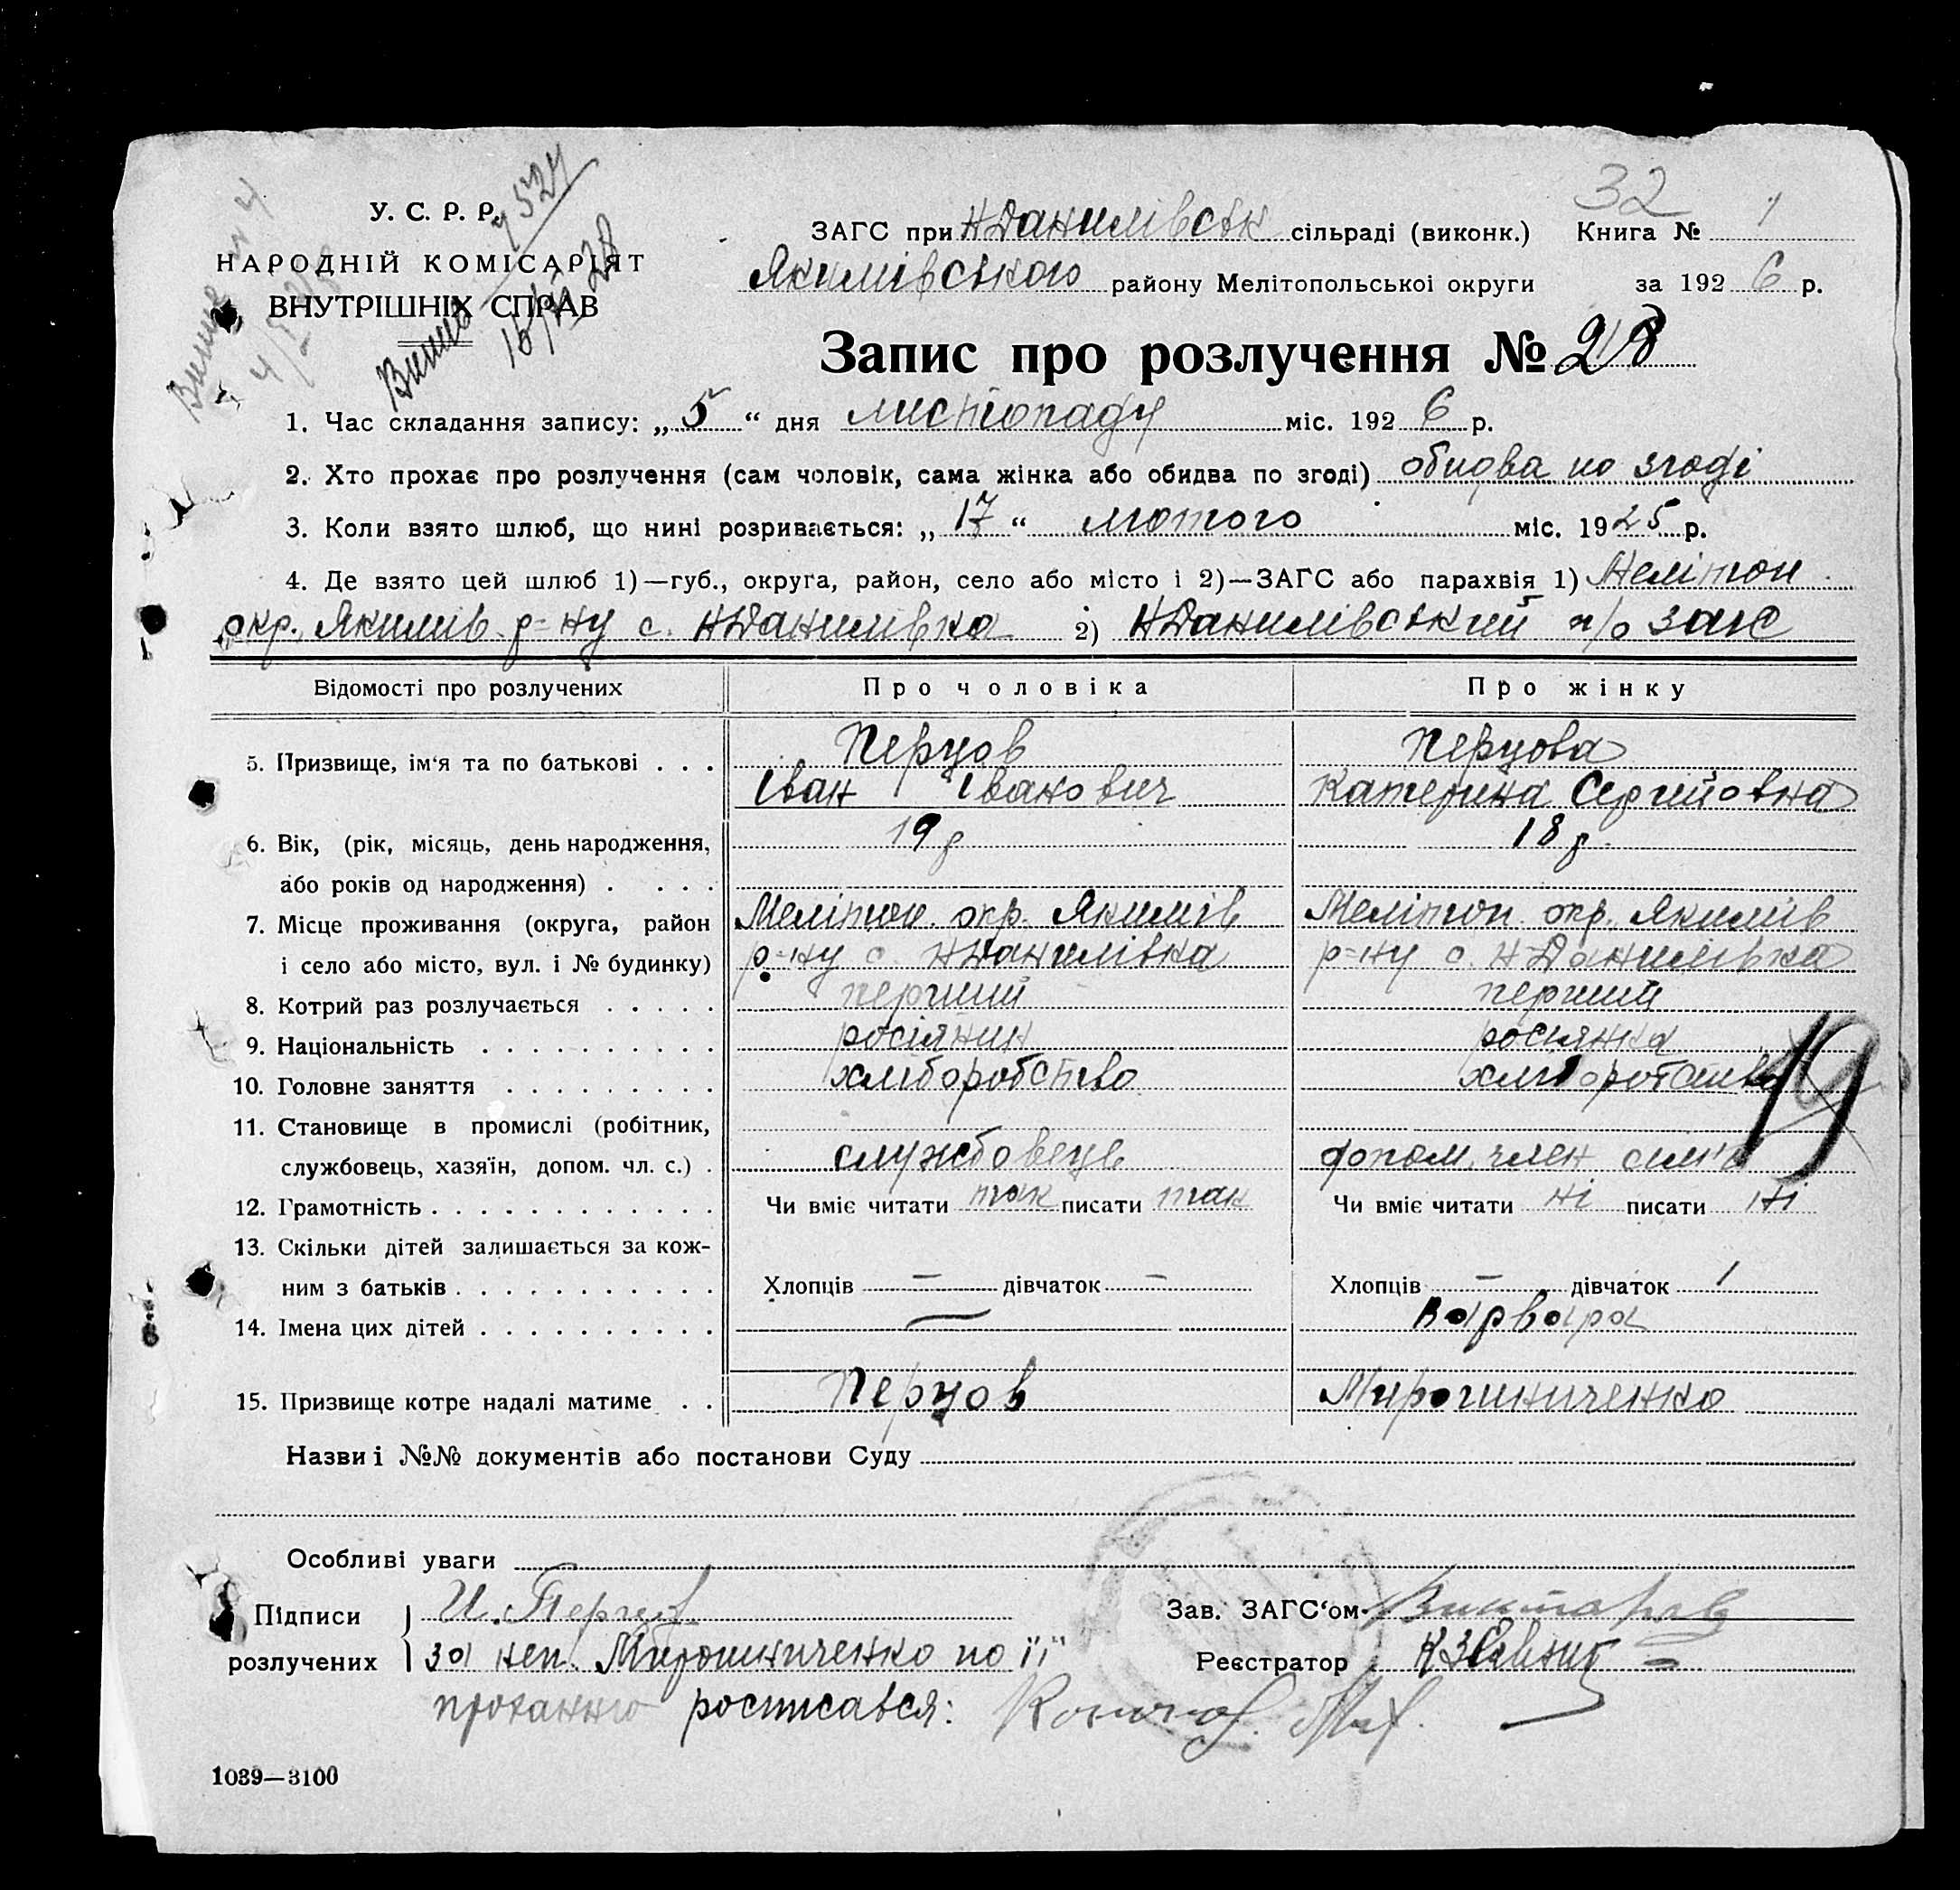 У. С. Р. Р.
НАРОДНІЙ КОМІСАРІЯТ
ВНУТРІШНІХ СПРАВ
32
ЗАГС при НДанилівськ сільраді (виконк.) Книга № 1
Якимівського району Мелітопольськоі округи за 1926 р.
Запис про розлучення № 28
1. Час складання запису: „5“ дня листопаду міс. 1926 р.
2. Хто прохає про розлучення (сам чоловік, сама жінка або обидва по згоді) обидва по згоді
3. Коли взято шлюб, що нині розривається: „17“ лютого міс. 1925 р.
4. Де взято цей шлюб 1)—губ., округа, район, село або місто і 2)—ЗАГС або парахвія 1) Мелітоп
окр., Якимів. р=ну с. НДанилівка 2) НДанилівський п/о загс
Відомості про розлучених Про чоловіка Про жінку
5. Призвище, ім‘я та по батькові . . . Перцов Іван Іванович Перцова Катерина Сергийовна
6. Вік, (рік, місяць, день народження, 19 р 18 р.
або років од народження) . . . .
7. Місце проживання (округа, район Мелітоп. окр. Якимів Мелітоп. окр. Якимів
і село або місто, вул. і № будинку) р=ну с. НДанилівка р=ну с. НДанилівка
8. Котрий раз розлучається . . . . . перший перший
9. Національність . . . . . . . . . . росіянин росіянка
10. Головне заняття . . . . . . . . . хліборобство хліборобство
19
11. Становище в промислі (робітник,
службовець, хазяїн, допом. чл. с.) . службовець допом. член сим'ї
12. Грамотність . . . . . . . . . . . . Чи вміє читати так писати так Чи вміє читати ні писати ні
13. Скільки дітей залишається за кож-
ним з батьків . . . . . . . . . . . Хлопців — дівчаток — Хлопців — дівчаток 1
14. Імена цих дітей . . . . . . . . . . — Варвара
15. Призвище котре надалі матиме . . Перцов Мирошниченко
Назви і №№ документів або постанови Суду
Особливі уваги
Підписи И. Перцов Зав. ЗАГС‘ом
розлучених за неп. Мирошниченко по її Реєстратор
проханню росписався:
1039—3100